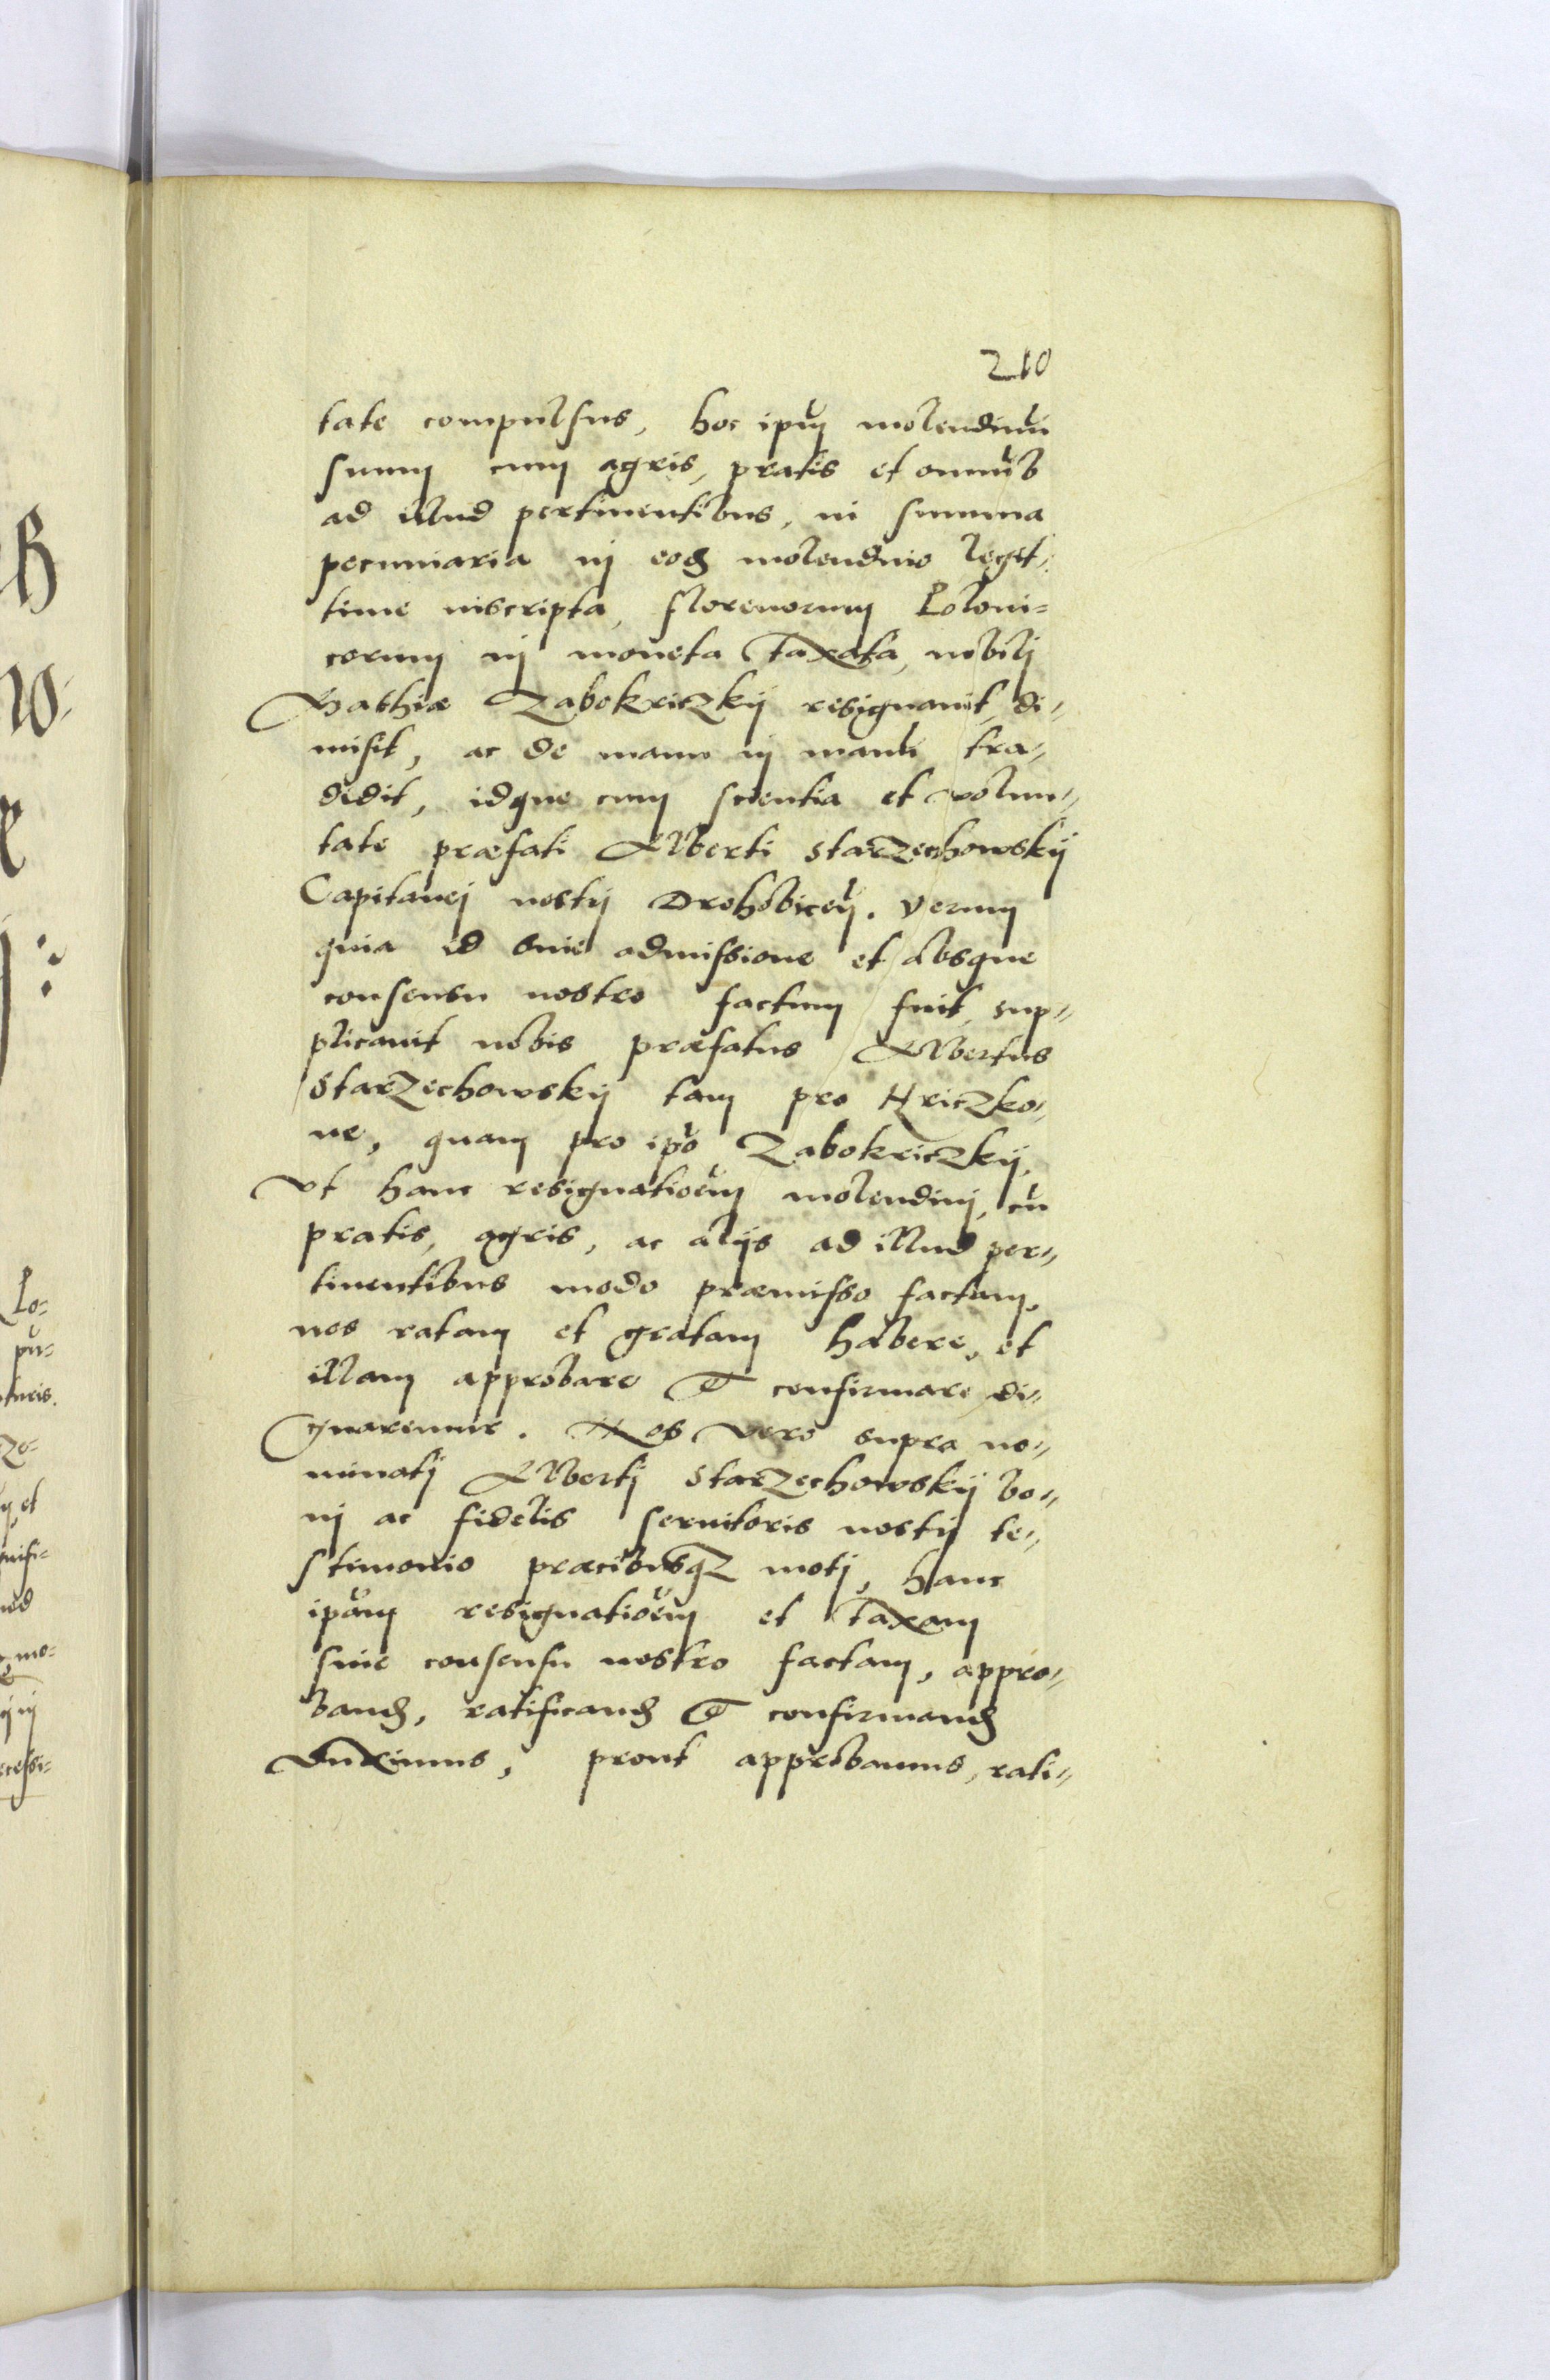 210
tate compulsus, hoc ipũm molendinũ
suum cum agris, pratis et omnĩb
ad illud pertinentibus, in summa
pecuniaria in eod molendino legit-
time inscripta, florenorum Poloni=
corum in moneta taxata, nobili
Hathiæ Zabokriczkÿ resignauit, di=
misit, ac de manu in manũ tra=
didit, idque cum scientia et volun=
tate præfati Alberti Starzechowskÿ
Capitanej nostrj Drohobiceñ. Verum
quia id sine admissione et absque
consensu nostro factum fuit, sup=
plicauit nobis præfatus Albertus
Starzechowskÿ tam pro Hriczko=
ne, quam pro ipõ Zabokriczkÿ,
vt hanc resignatioẽm molendinj, cũ
pratis, agris, ac alijs ad illud per=
tinentibus modo præmisso factam,
nos ratam et gratam habere, et
illam approbare & confirmare di=
gnaremur. Nos vero supra no=
minatj Albertj Starzechowskÿ bo=
nj ac fidelis seruitoris nostrj te=
stimonio præcibusq motj, hanc
ipãm resignatioẽm et taxam
sine consensu nostro factam, appro=
band, ratificand & confirmand
duximus, prout approbamus, rati=
Lo=
pu=
turis.
zo=
et
nifi=
mo=
cessi=